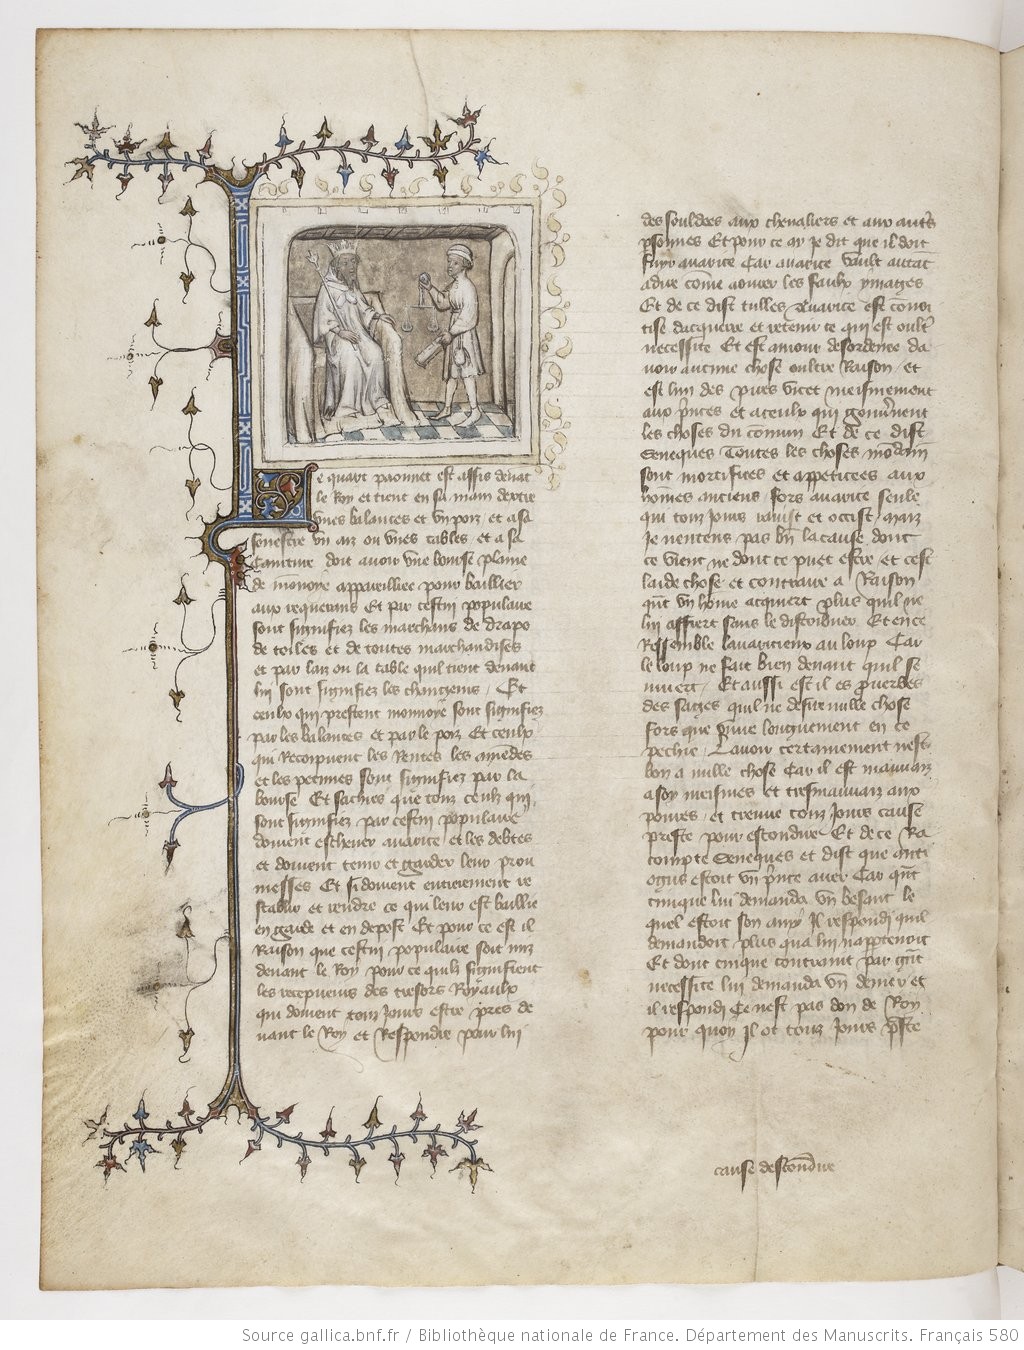 Le quart paonnet est assis devāt
le Roy et tient en sa main dextre
vnes balances et vn pois et a sa
senestre vn aiz ou vnes tables et a sa
Cainture doit auoir vne bourse plaine
de mōnoye appareilliee pour baillier
aux requerans Et par cestui populaire
sont signifiez les marchans de drapz
de toiles et de toutes marchandises
et par laiz ou la table quil tient deuant
lui sont signifiez les changeurs / Et
ceulx qui prestent monnoye sont signifiez
par les balances et par le poiz Et ceulx
qui Recoipuent les Rentes les amēdes
et les peccunes sont signifiez par la
bourse Et sachies que touz ceulx qui
sont signifiez par cestui populaire
doiuent escheuer auarice et les debtes
et doiuent tenir et garder leur prou
messes Et si doiuent entierement re
stablir et rendre ce qui leur est baillie
en garde et en depost Et pour ce est il
Raison que cestui populaire soit mis
deuant le Roy pour ce quilz signifient
les recepueurs des tresors Royaulx
qui doiuent touz Jours estre pres de
uant le Roy et Respondre pour lui
des souldees aux cheualiers et aux autrēs
psonnes Et pour ce ay Je dit que il doit
fuyr auarice Car auarice vault autāt
a dire cōme aourer les faulx ymages
Et de ce dist tulles Auarice est couuoi
tise dacquerre et retenir ce qui est oultʳ
necessite Et est amour desordenee da
uoir aucune chose oultre Raison / et
est lun des pires vices meismement
aux pinces et a ceulx qui gouūnent
les choses du cōmun Et de ce dist
Seneques Toutes les choses mōdaīs
sont mortifiees et appeticees aux
hōmes anciens / fors auarice seule
qui touz Jours rauist et occist / maiz
Je nentens pas bn̄ la cause dont
ce vient ne dont ce puet estre et cest
laide chose et contraire a Raison
qn̄t vn hōme acquiert plus quil ne
lui affiert sans le distribuer Et en ce
Ressemble lauaricieux au loup Car
le loup ne fait bien deuant quil se
muert / Et aussi est il es puerbes
des sages quil ne desire nulle chose
fors que viure longuement en ce
pechie / Lauoir certainement nest
bon a nulle chose Car il est mauuaiz
a soy meismes et tresmauuaiz aux
poures / et treuue touz Jours cause
preste pour escondire Et de ce Ra
compte Seneques et dist que anti
ogus estoit vn pīnce auer Car qn̄t
cinique lui demanda vn besant le
quel estoit son amy Il respondi quil
demandoit plus qua lui nappartenoit
Et dont cinique contraint par grāt
necessite lui demanda vn denier et
il respondi Ce nest pas don de Roy
pour quoy Il ot touz Jours p̄ste
cause descondire
Source gallica.bnf.fr / Bibliothèque nationale de France. Département des Manuscrits. Français 580